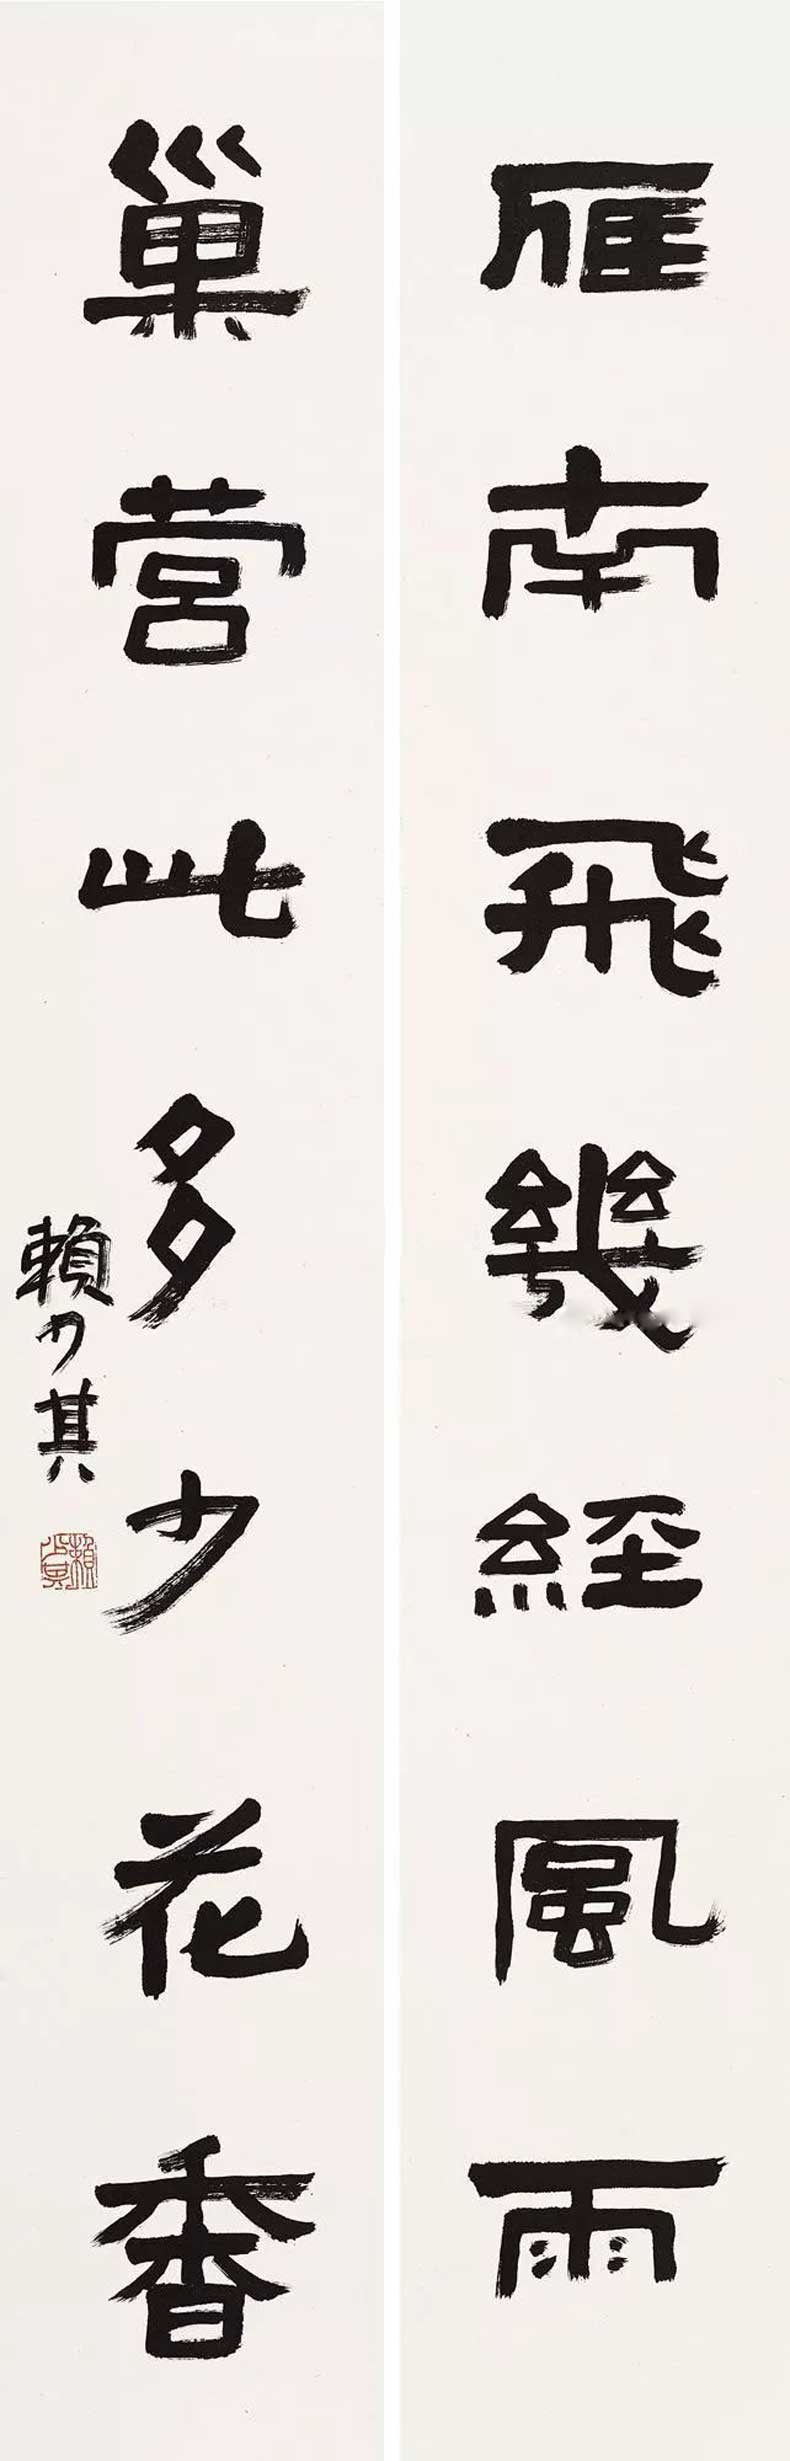 雁南飛幾經風雨
巢营此多少花香
賴少其
賴少其